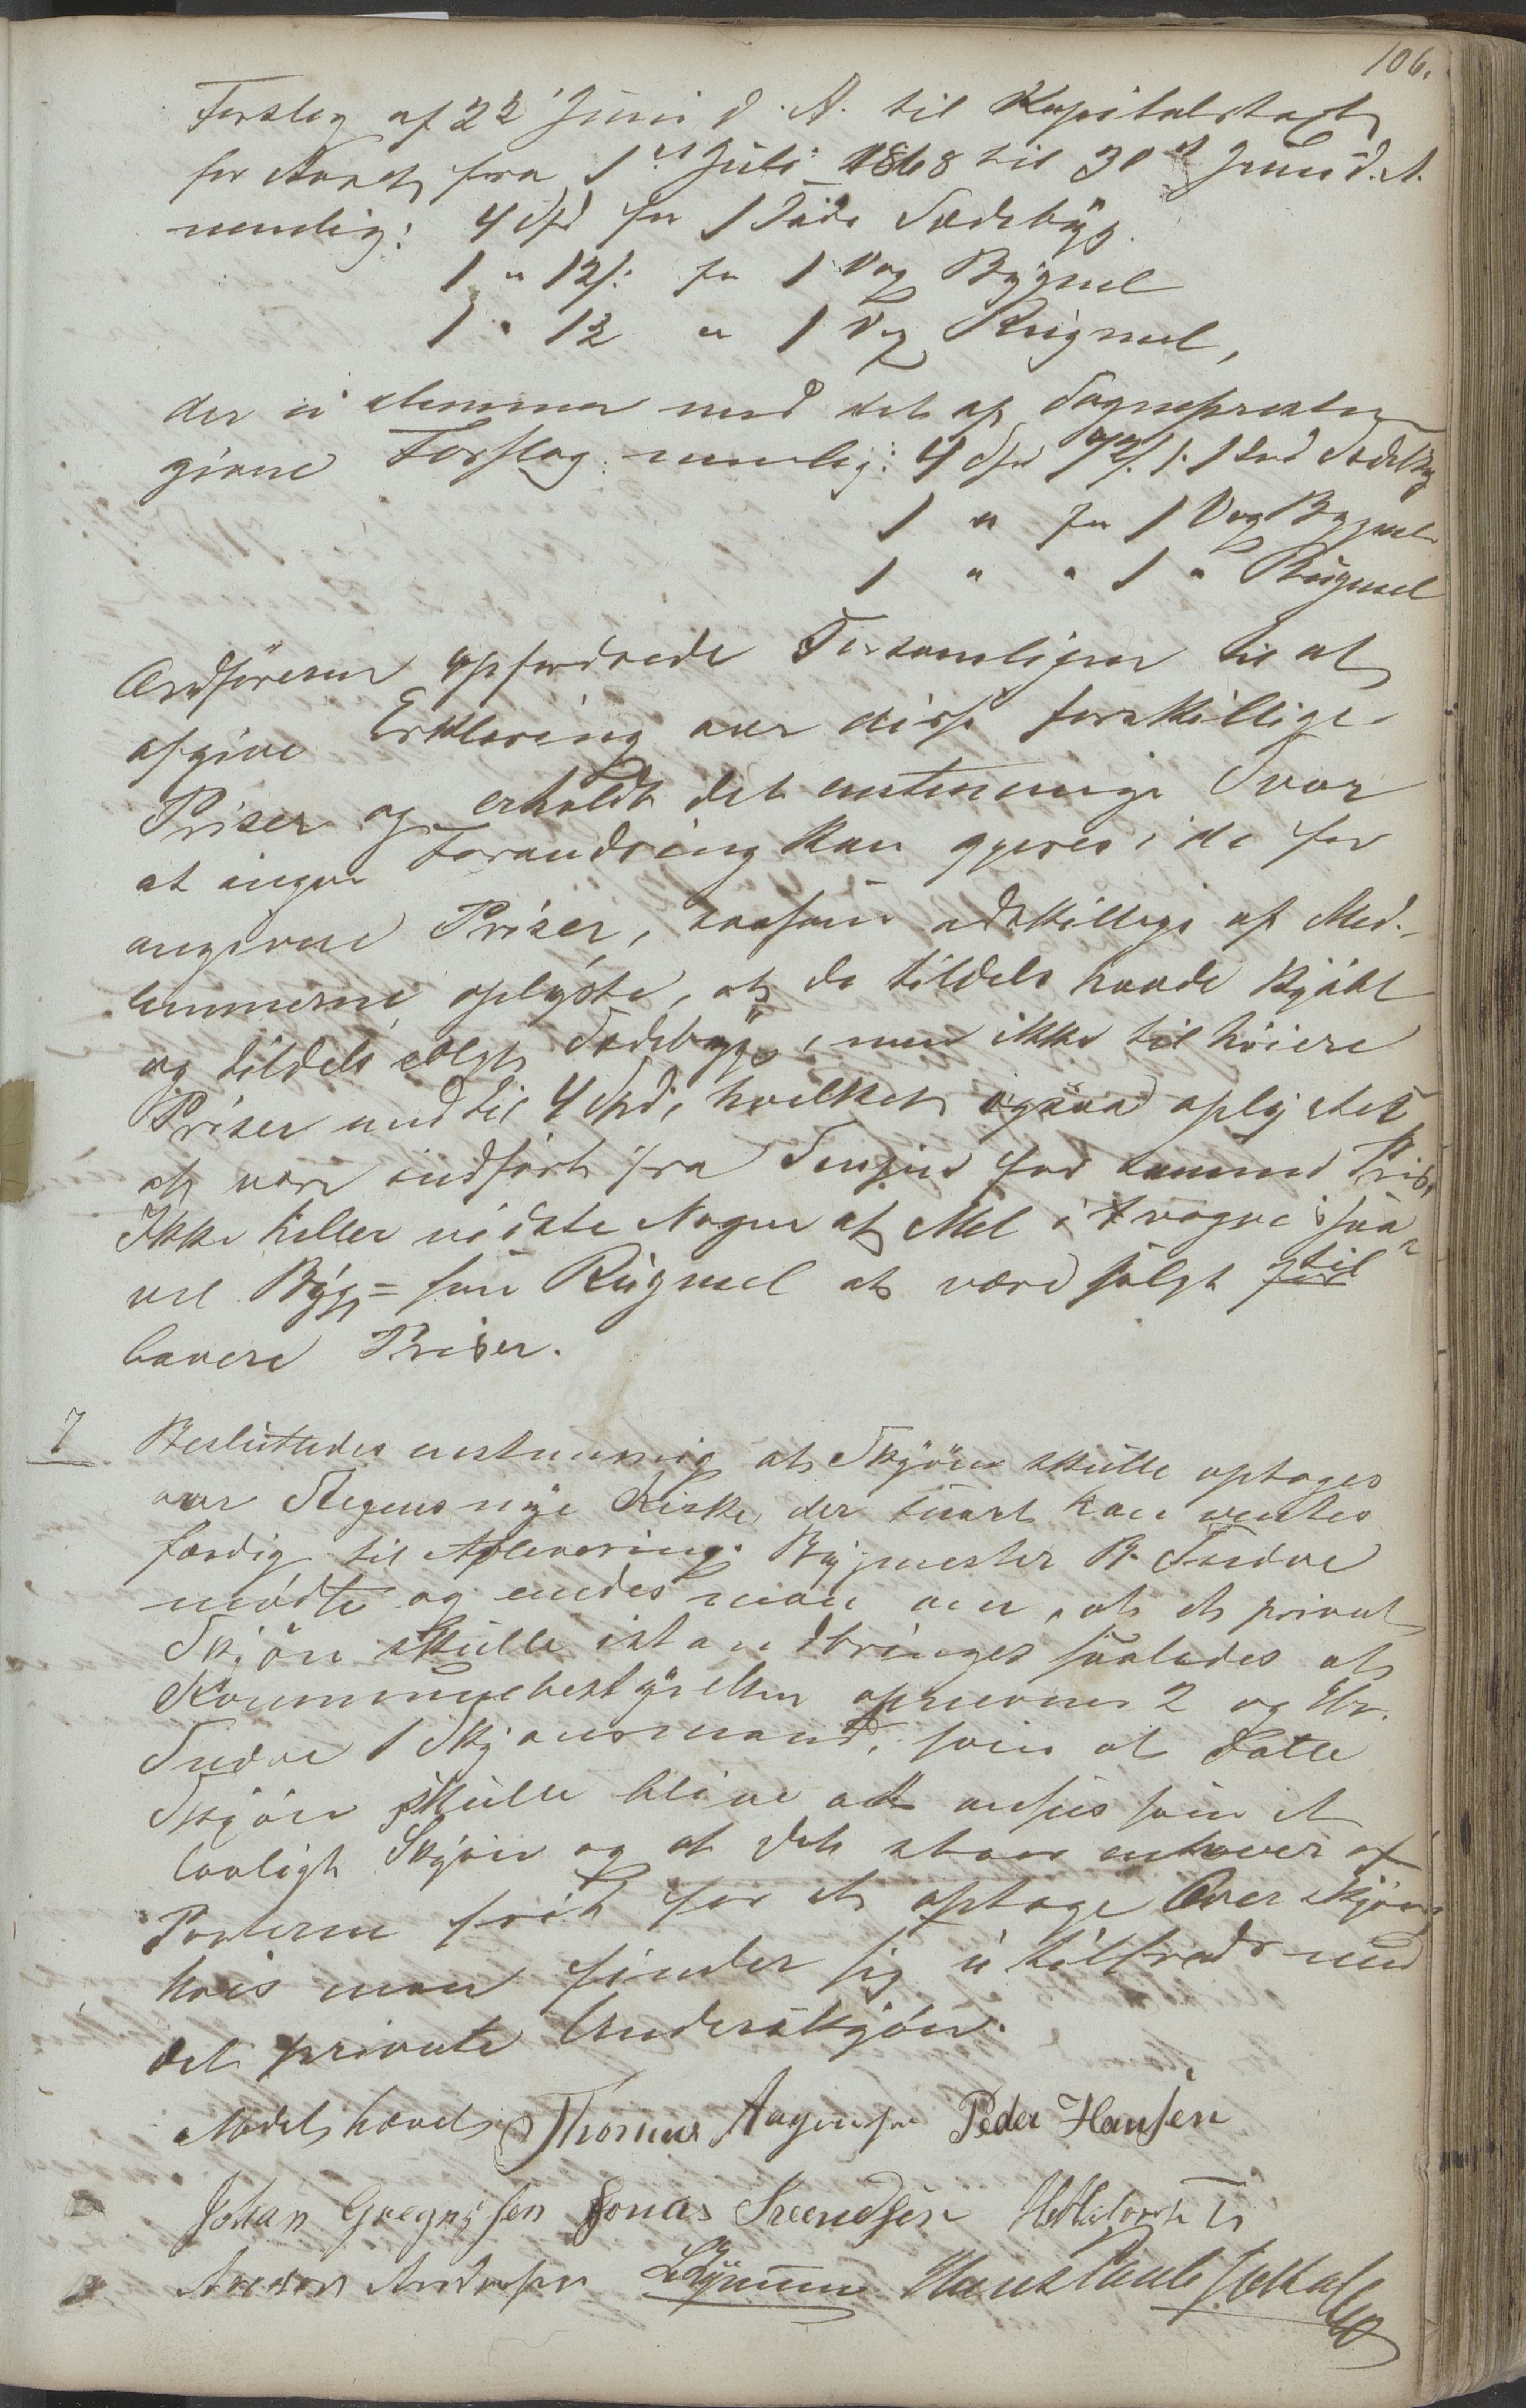 106.
Forslag af 22' Juni d. A. til Kapitalstaxt
for Aaret fra 1ste Juli 1868 til 30te Juni d. A.
nemlig: 4 Spd for 1 Tøde Sædebyg.
1 " 12 s. for 1 Vog Bygmel
1 " 12 " 1 Vog Rugmel,
der ei stemmer med det af Sognepresten
givne Forslag nemlig: 4 Spd 72 s. f. 1 Tød Sædebyg
1 " for 1 Vog Bygmel
1 " " 1 " Rugmel
Ordføreren opfordrede Forsamlingen til at
afgive Erklæring over disse forskillige
Priser og erholdt det enstemmige Svar
at ingen Forandring kan gjøres i de for
angivne Priser, saasom adskillige af Med-
lemmerne oplyste, at de tildels havde kjøbt
og tildels solgt Sædebyg, men ikke til høiere
Priser end til 4 Spd, hvilket ogsaa oplystes
at være indført fra Senjen for samme Pris,
Ikke heller vidste Nogen at Mel i Krogve saa-
vel Byg= som Rugmel at være solgt for til
lavere Priser.
7 Besluttedes enstemmig at Skjøn skulle optages
over Stegens nye Kirke, der snart kan ventes
færdig til Aflevering. Bygmester R. Tndve
mødte og enedes man om, at et privat
Skjøn skulle istandbringes saaledes at
Kommunebestyrelsen opnevner 2 og Hr.
Tndve 1 Skjønsmand, som at dette
Skjøn skulle blive at ansees som et
lovligt Skjøn og at det staar enhver af
Parterne frit for at optage Overskjøn,
hvis man finder sig utilfreds med
det private Underskjøn.
Mødet hævet Thomas Aagensen Peder Hansen
Johan Gregusen Jonas Sveendsen
Andersen Hans Paul